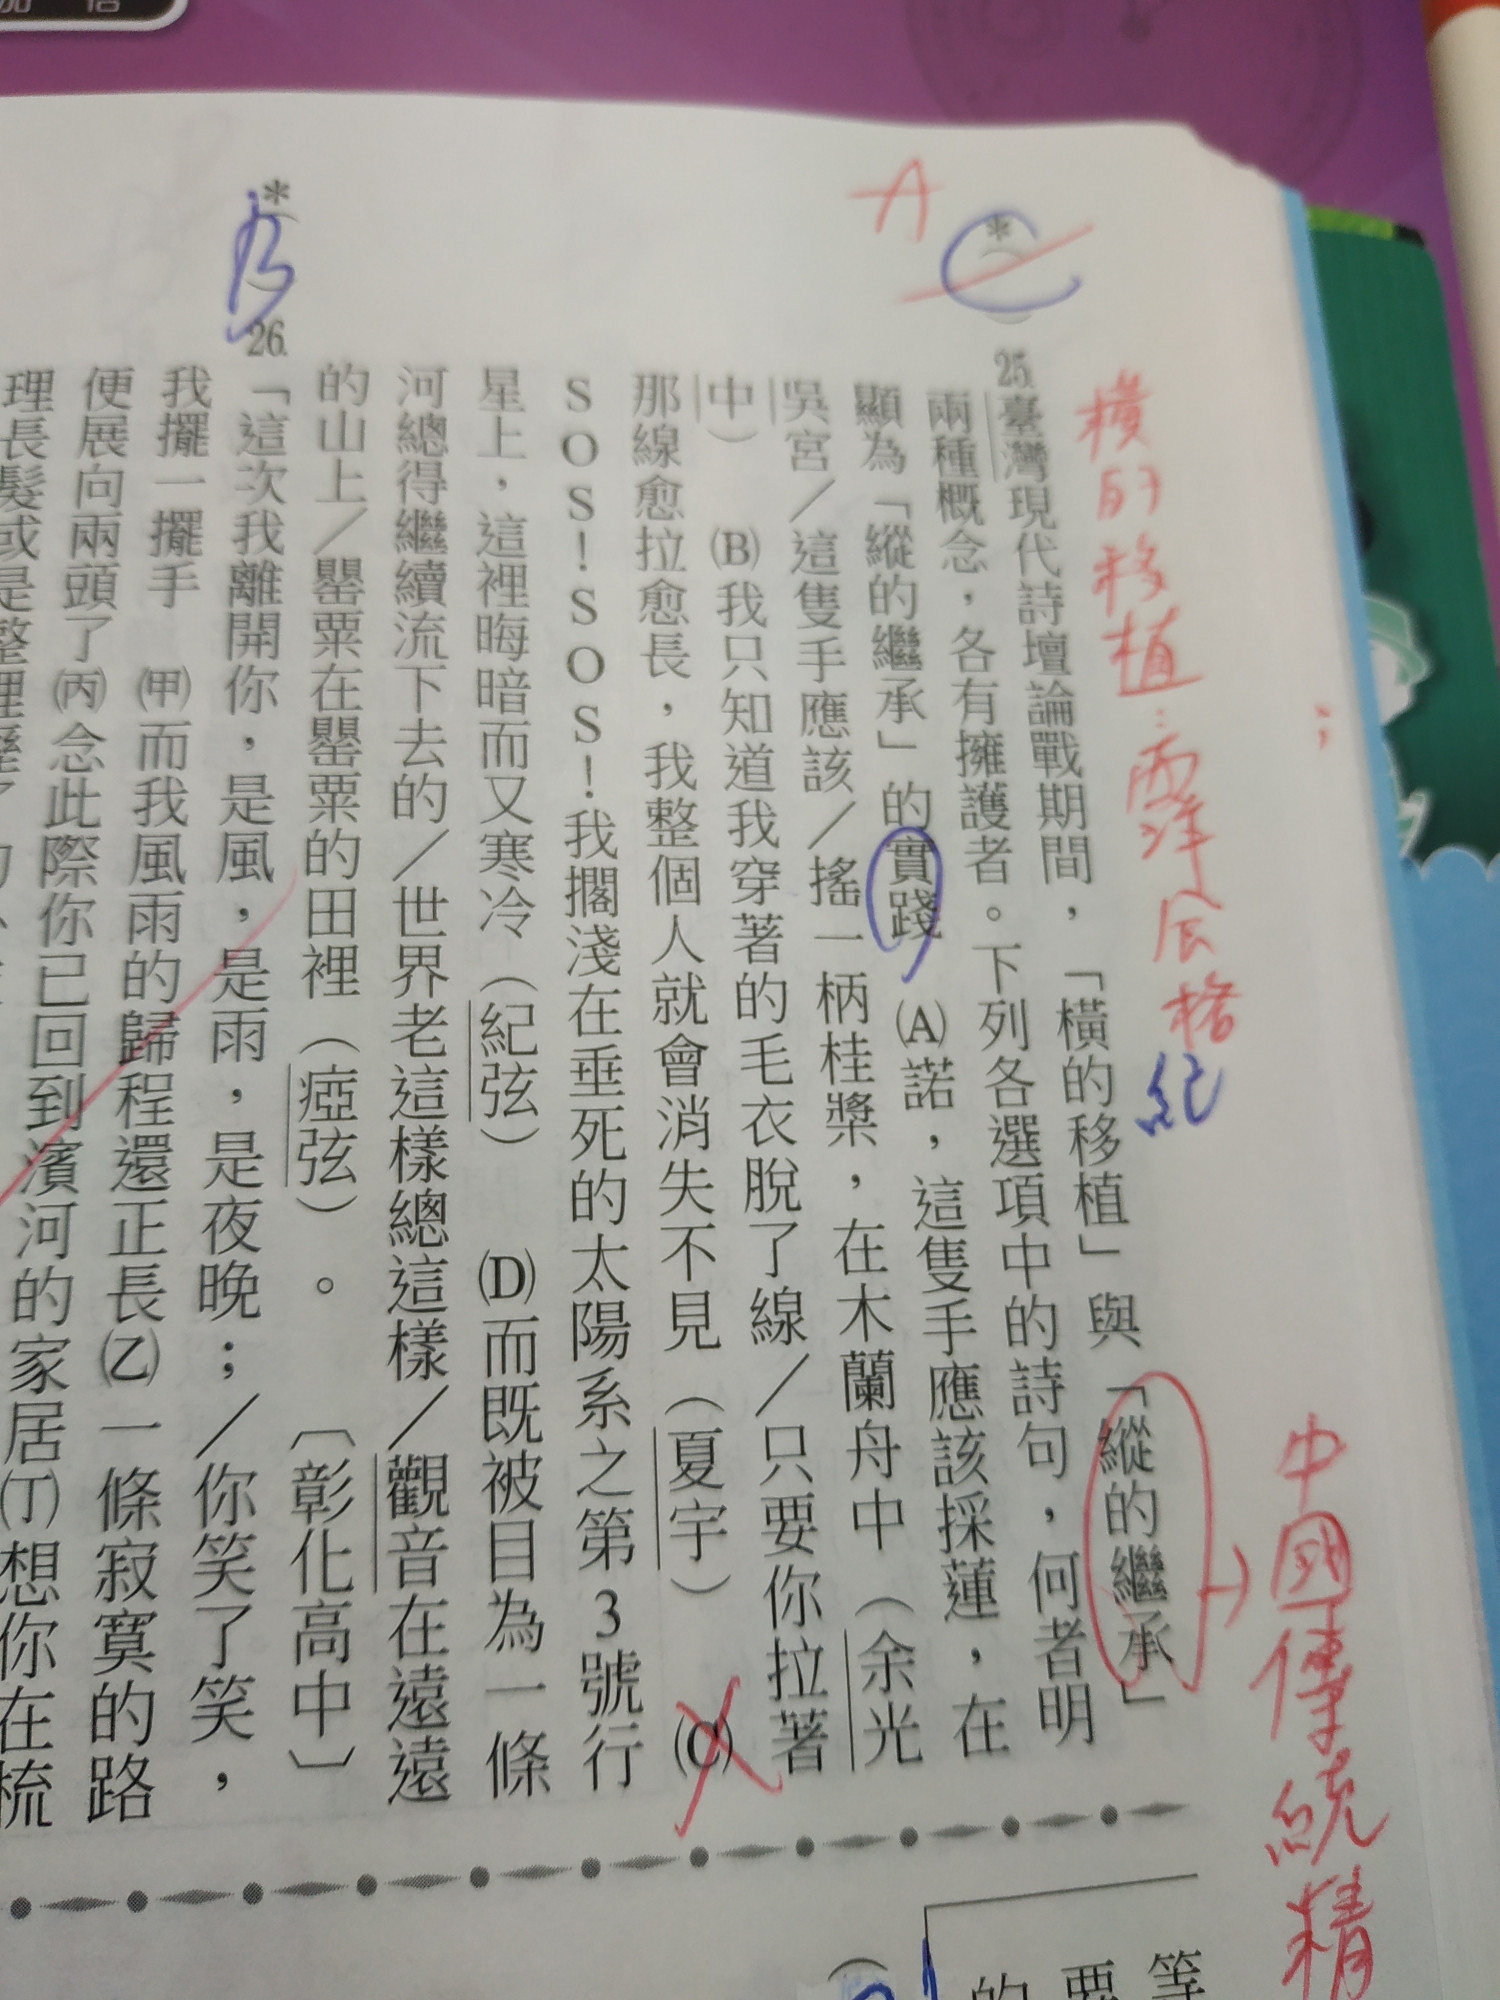 加倍
橫的移植：西洋風格
紀
中國傳統精
A
C
25.臺灣現代詩壇論戰期間，「橫的移植」與「縱的繼承」
兩種概念，各有擁護者。下列各選項中的詩句，何者明
顯為「縱的繼承」的實踐　(A)諾，這隻手應該採蓮，在
吳宮／這隻手應該／搖一柄桂槳，在木蘭舟中（余光
中）　(B)我只知道我穿著的毛衣脫了線／只要你拉著
那線愈拉愈長，我整個人就會消失不見（夏宇）　(C)
SOS！SOS！我擱淺在垂死的太陽系之第3號行
星上，這裡晦暗而又寒冷（紀弦）　(D)而既被目為一條
河總得繼續流下去的／世界老這樣總這樣／觀音在遠遠
的山上／罌粟在罌粟的田裡（瘂弦）。　〔彰化高中〕
B
26.「這次我離開你，是風，是雨，是夜晚；／你笑了笑，
我擺一擺手　(甲)而我風雨的歸程還正長(乙)一條寂寞的路
便展向兩頭了(丙)念此際你已回到濱河的家居(丁)想你在梳
理長髮或是整理
等
要
的